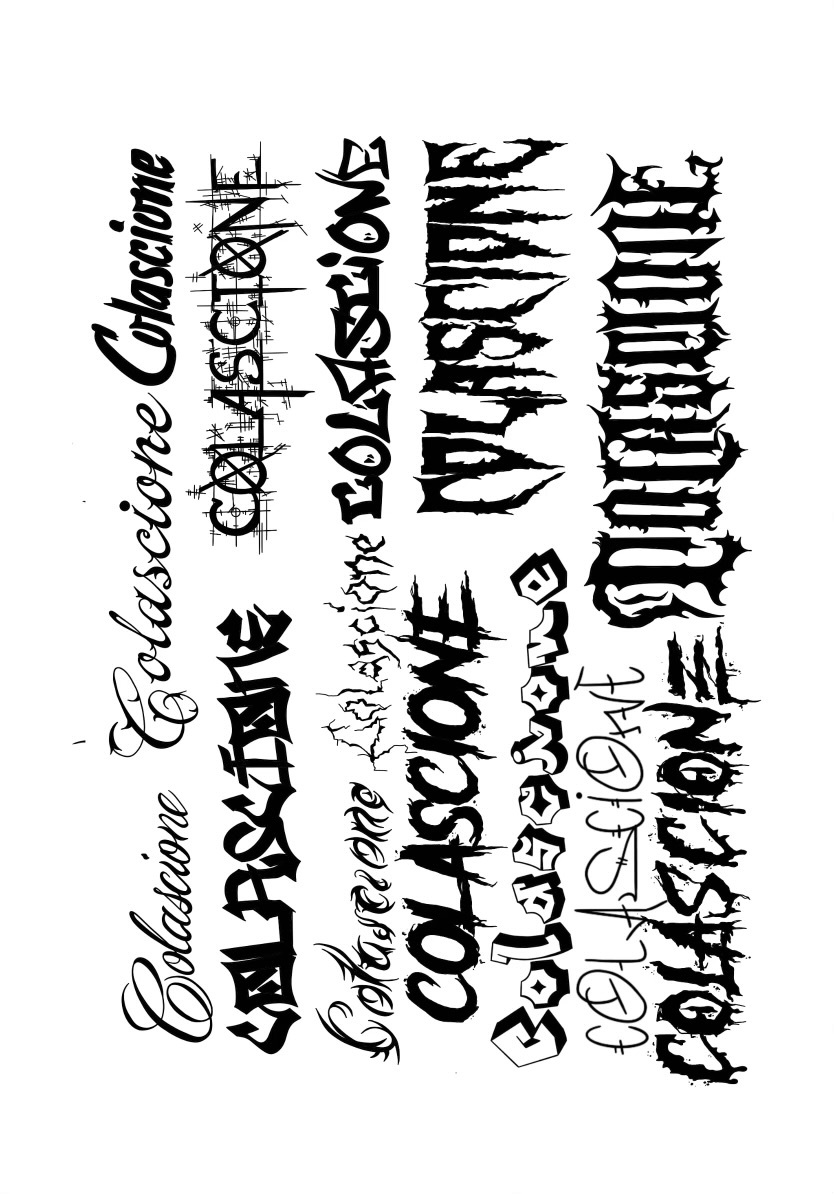 Colascione Colascione Colascione
COLASCIONE COLASCIONE
Colascione Colascione COLASCIONE
COLASCIONE COLASCIONE
Colascione
COLASCIONE Colascione
COLASCIONE